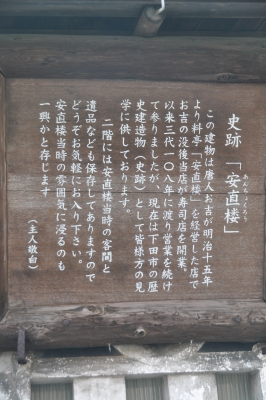 史跡 「安直楼」
あんちょくろう
この建物は唐人お吉が明治十五年
より料亭「安直楼」を経営した店で
お吉の没後当店が寿司店を開業、
以来三代一〇八年に渡り営業を続け
て参りましたが、現在は下田市の歴
史建造物(史跡)として皆様方の見
学に供しております。
二階には安直楼当時の客間と
遺品なども保存してありますので
どうぞお気軽にお入り下さい。
安直楼当時の雰囲気に浸るのも
一興かと存じます
(主人敬白)